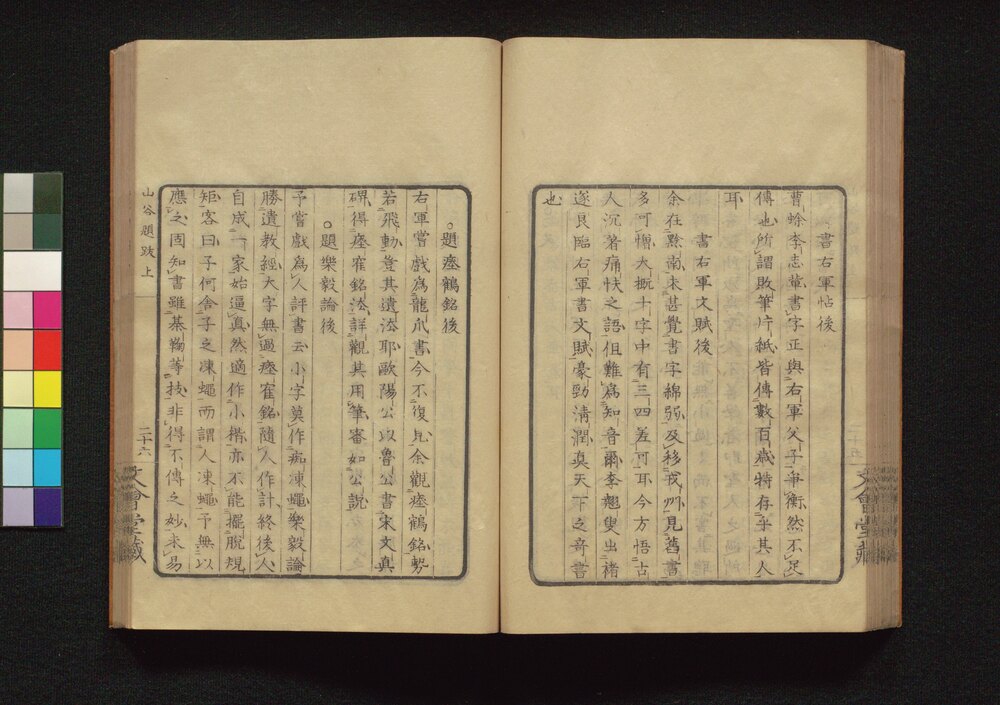 書右軍帖後
曹蜍李志輩書字正與右軍父子爭衡然不足
傳也所謂敗筆片紙皆傳數百歲特存乎其人
耳
書右軍文賦後
余在黔南未甚覺書字綿弱及移戎州見舊書
多可憎大概十字中有三四差可耳今方悟古
人沉著痛快之語但難爲知音爾李翹叟出褚
遂良臨右軍書文賦豪勁清潤真天下之奇書
也
○題瘞鶴銘後
右軍嘗戲爲龍爪書今不復見余觀瘞鶴銘勢
若飛動豈其遺法耶歐陽公以魯公書宋文真
碑得瘞寉銘法詳觀其用筆審如公說
○題樂毅論後
予嘗戲爲人評書云小字莫作痴凍蠅樂毅論
勝遺教經大字無過瘞寉銘隨人作計終後人
自成一家始逼真然適作小楷亦不能擺脫規
矩客曰子何舍子之凍蠅而謂人凍蠅予無以
應之固知書雖棊鞠等技非得不傳之妙未易
山谷題跋上
二十六
文會堂藏
文會堂藏